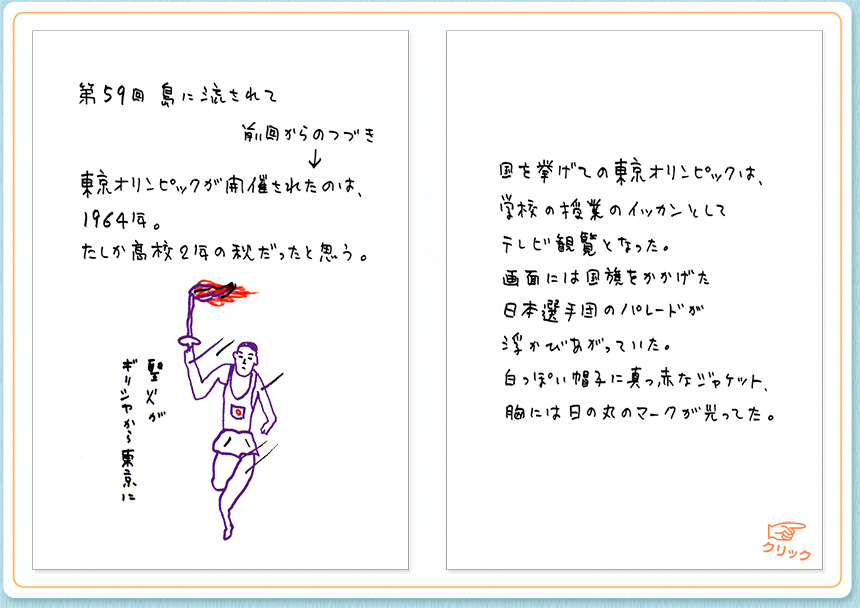 第59回 島に流されて
前回からのつづき
↓
東京オリンピックが開催されたのは、
1964年。
たしか高校2年の秋だったと思う。
聖火が
ギリシャから東京に
国を挙げての東京オリンピックは、
学校の授業のイッカンとして
テレビ観覧となった。
画面には国旗をかかげた
日本選手団のパレードが
浮かびあがっていた。
白っぽい帽子に真っ赤なジャケット、
胸には日の丸のマークが光ってた。
クリック